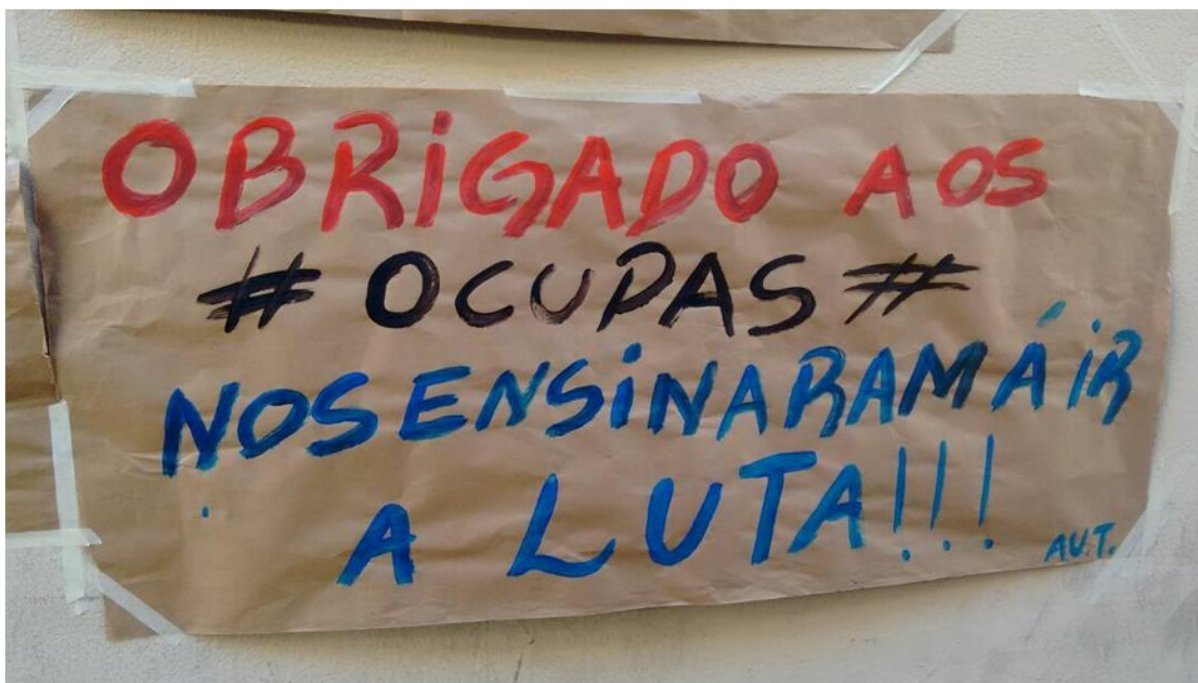 OBRIGADO AOS
# OCUPAS #
NOS ENSINARAM Á IR
A LUTA!!!
AUT.